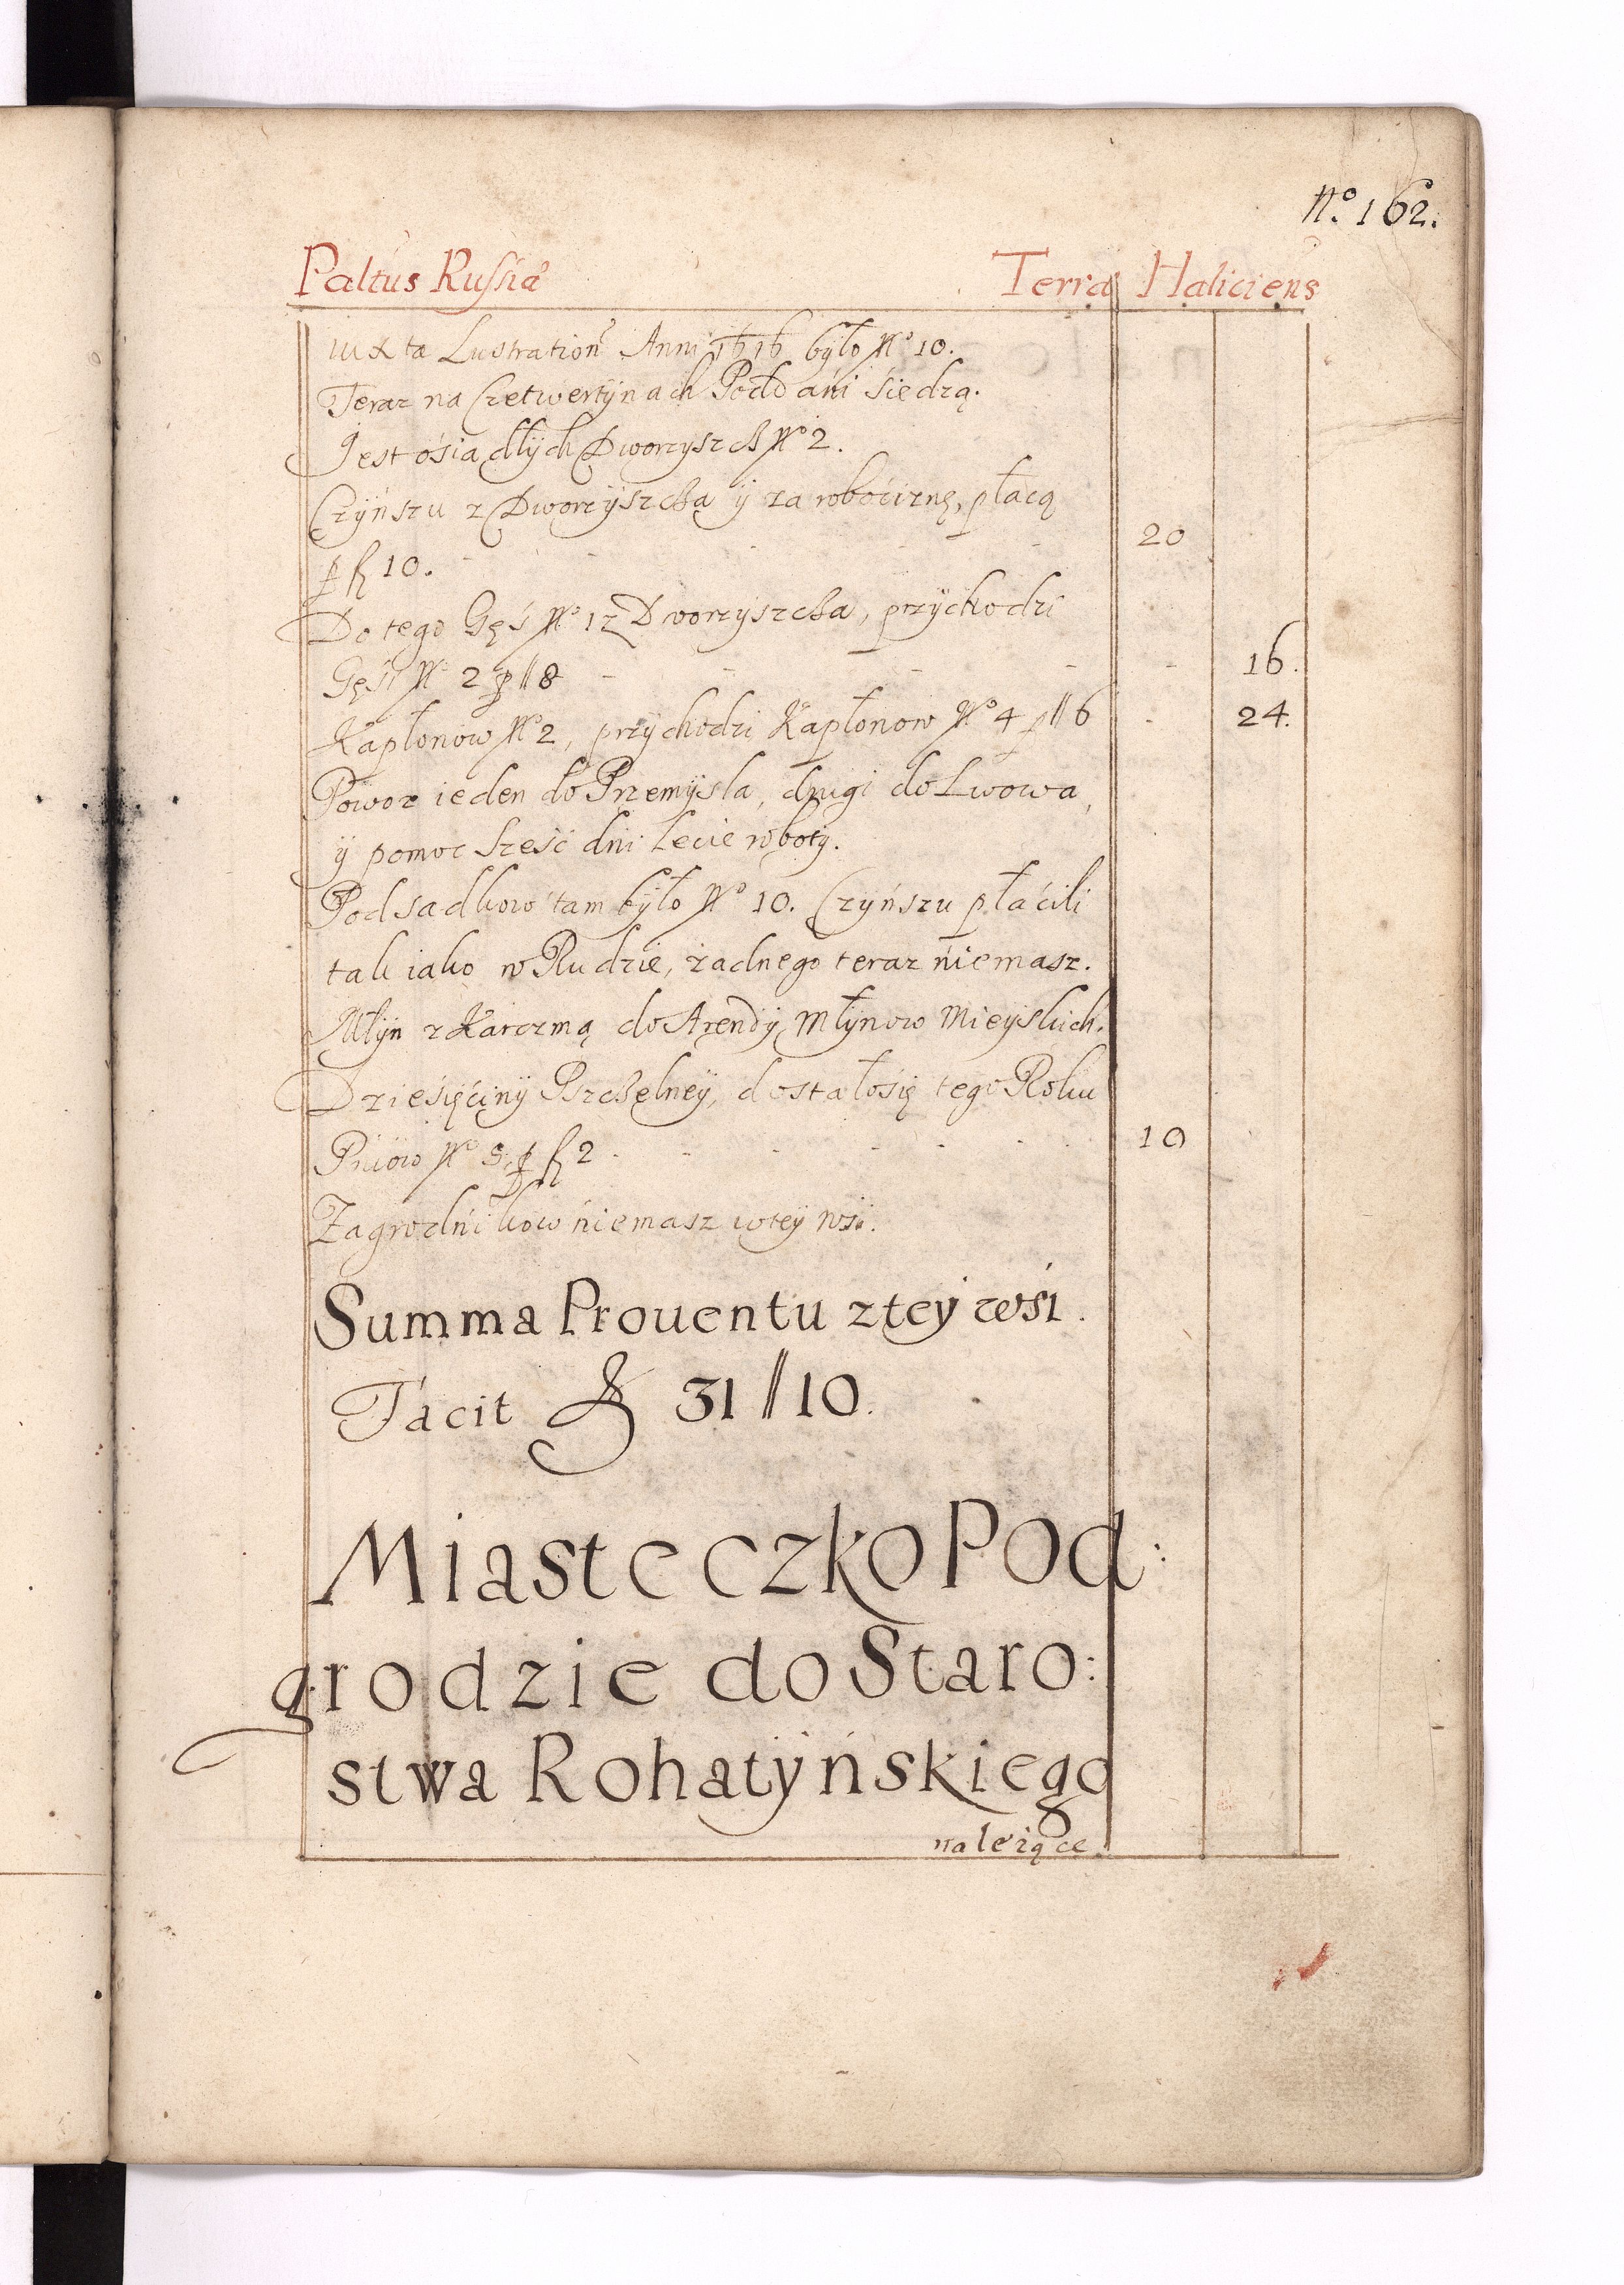 No. 162.
Paltus Russiæ Terra Haliciens
iuxta Lustration Anni 1616 było No 10.
Teraz na Czetwertynach Poddani siedzą.
Jest ośiadłych Dworzyszch No 2.
Czÿnszu z Dworzyszcza ÿ za roboćiznę, płacą
ꝑ fl 10. 20
Do tego Gęś No 1 z Dworzyszcza, przÿchodzi
Gęśi No 2 ꝑ ll 8 16.
Kapłonow No 2, przÿchodzi Kapłonow No 4 ꝑ ll 6 24.
Powoz ieden do Przemÿsla, drugi do Lwowa,
ÿ pomoc sześć dni Lecie robotÿ.
Podsadkow tam bÿło No 10. Czÿńszu płaćili
tak iako w Rudzie, żadnego teraz niemasz.
Młÿn z Karczmą do Arendÿ Młÿnow Mieÿskich.
Dzieśięćinÿ Pszczelneÿ, dostałosię tego Roku
Pniow No 5. ꝑ fl 2 10
Zagrodńikow niemasz w teÿ wsi.
Summa Prouentu z teÿ wśi.
Facit fl 31 ll 10.
Miasteczko Pod:
grodzie do Staro:
stwa Rohatÿńskiego
należące